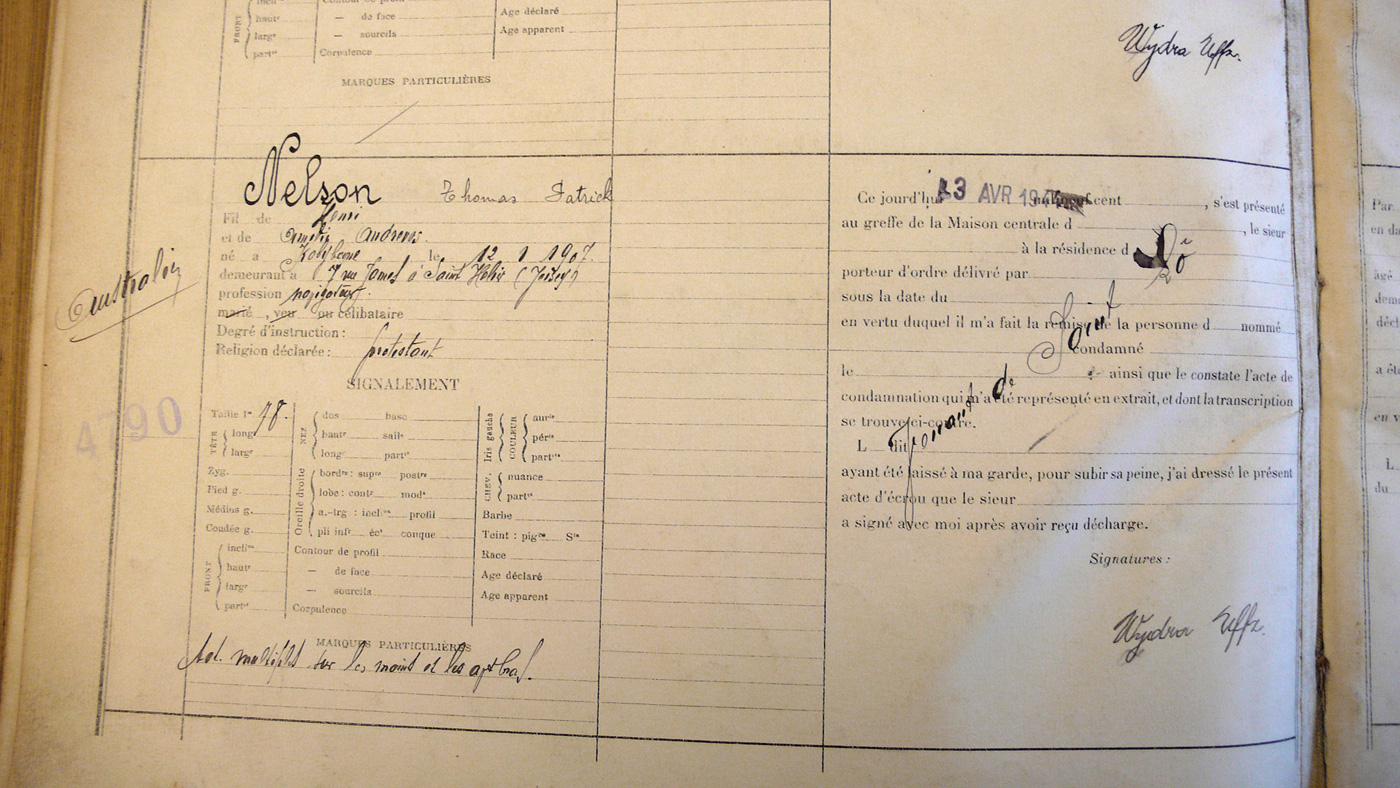 FRONT
haut^r
larg^r
part^té
— de face
— sourcils
Corpulence
Age déclaré
Age apparent
MARQUES PARTICULIÈRES
Wydra Uffz.
Nelson Thomas Patrick
Fil de Henri
et de Andrews.
né a le 12 1 1907.
demeurant à 7 rue James à Saint Hélier (Jersey)
profession navigateur.
marié, veuf ou célibataire
Degré d'instruction :
Religion déclarée : protestant
Australien
4790
SIGNALEMENT
Taille 1^m 78.
TÊTE
long^r
larg^r
Zyg.
Pied g.
Médius g.
Coudée g.
FRONT
incli^on
haut^r
larg^r
part^té
NEZ
dos base
haut^r sail^e
long^r part^té
Oreille droite
bord^re : sup^re post^re
lobe : cont^r mod^e
a.-trg : incl^on profil
pli inf^r éc^t conque
Contour de profil
— de face
— sourcils
Corpulence
Iris gauche
COULEUR
aur^le
pér^ie
part^té
CHEV.
nuance
part^té
Barbe
Teint : pig^re S^ne
Race
Age déclaré
Age apparent
MARQUES PARTICULIÈRES
Tat. multiples sur les mains et les avt bras.
Ce jourd'hui 13 AVR 194 mil neuf cent , s'est présenté
au greffe de la Maison centrale d , le sieur
à la résidence d
porteur d'ordre délivré par
sous la date du
en vertu duquel il m'a fait la remise de la personne d nommé
condamné
le ainsi que le constate l'acte de
condamnation qui m'a été représenté en extrait, et dont la transcription
se trouve ci-contre.
L dit
ayant été laissé à ma garde, pour subir sa peine, j'ai dressé le présent
acte d'écrou que le sieur
a signé avec moi après avoir reçu décharge.
Venant de Saint Lô
Signatures :
Wydra Uffz.
Par
en da
âgé
dem
décl
a ét
en v
L
du